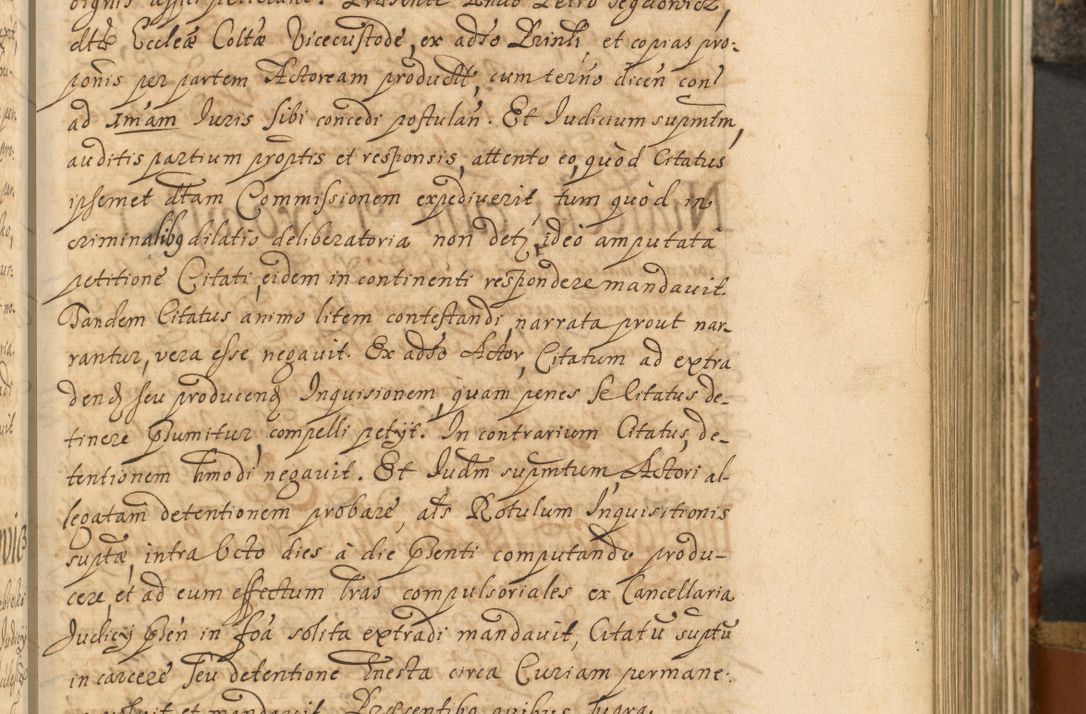 dtæ Eccleæ Coltæ Vicecustode, ex adso Prinli, et copias pro-
ponis per partem Actoream productt, cum terno dicen con
ad Imam Iuris sibi concedi postulan. Et Iudicium supmtm,
auditis partium proptis et responsis, attento eo, quòd Citatus
ipsemet dtam Commissionem expediverit, tum quòd in
criminalibq dilatio deliberatoria non detz, ideò amputata
petitione Citati, eidem in continenti respondere mandavit.
Tandem Citatus animo litem contestandi, narrata prout nar-
rantur, vera esse negavit. Ex adso Actor, Citatum ad extra
dendz seu producendz Inquisionem, quam penes se Citatus de-
tinere psumitur, compelli petÿt. In contrarium Citatus, de-
tentionem hmodi negavit. Et Iudm supmtum, Actori al-
legatam detentionem probare, als Rotulum Inquisitionis
suptæ, intra octo dies à die psenti computando produ-
cere, et ad eum effectum lras compulsoriales ex Cancellaria
Iudicÿ psen in foa solita extradi mandavit, Citatu suptu
in carcere seu detentione honesta circa Curiam permane-
et mandavit. Præsentibq quibus supra.